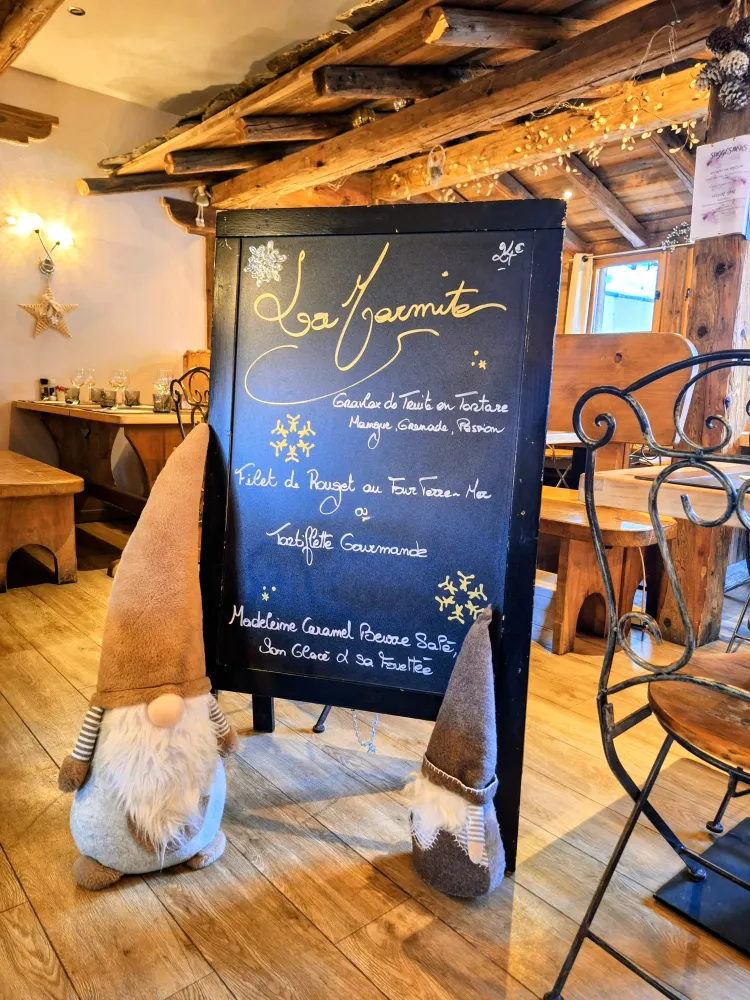 24€
La Marmite
Gravlax de Truite en Tartare
Mangue, Grenade, Passion
Filet de Rouget au Four Terre-Mer
ou
Tartiflette Gourmande
Madeleine Caramel Beurre Salé,
Son Glacé & sa Fouettée
SUGGESTIONS